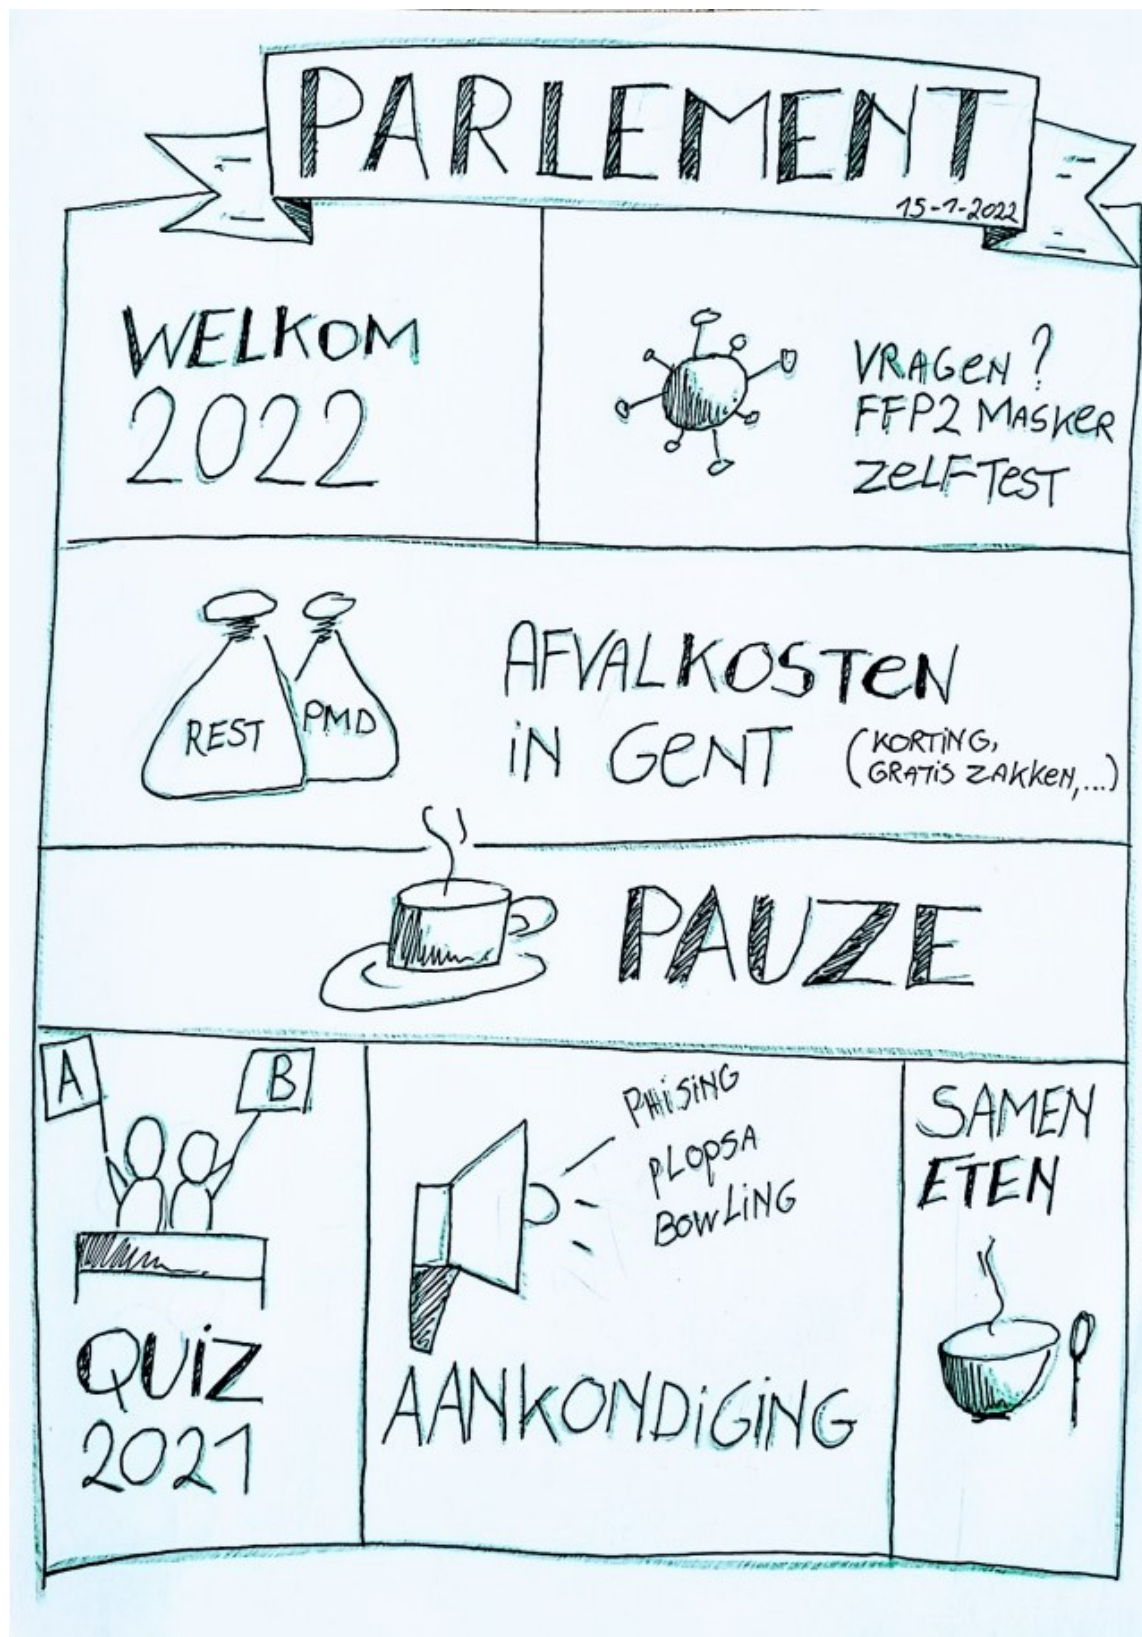 PARLEMENT
15-1-2022
WELKOM
2022
VRAGEN?
FFP2 MASKER
ZELFTEST
REST
PMD
AFVALKOSTEN
IN GENT
(KORTING,
GRATIS ZAKKEN,...)
PAUZE
A
B
QUIZ
2021
PHISING
PLOPSA
BOWLING
AANKONDIGING
SAMEN
ETEN